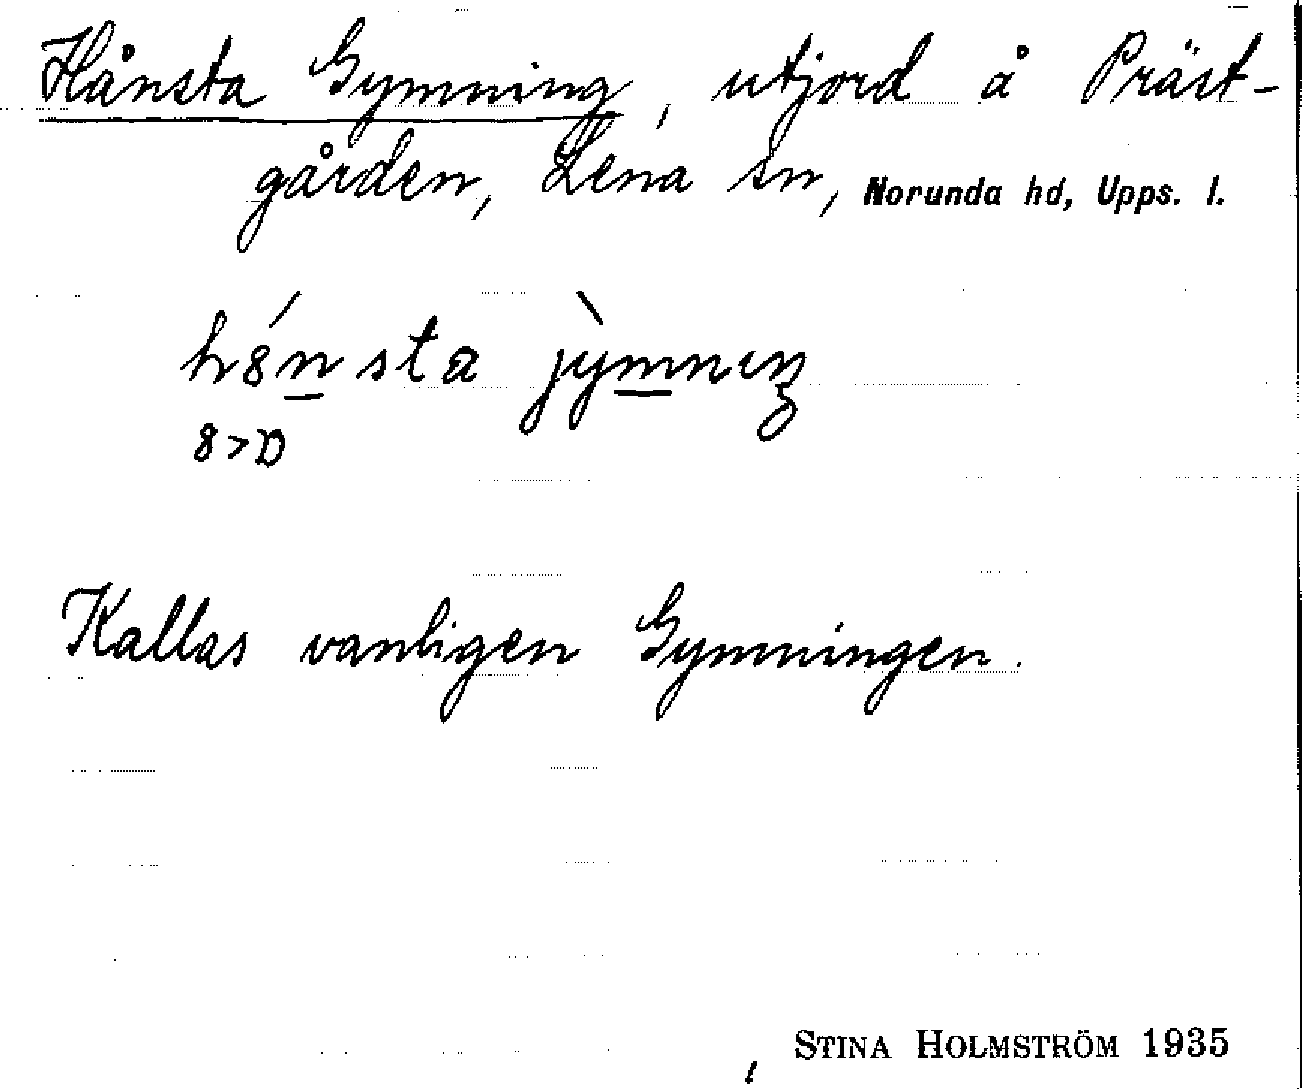 Hånsta Gymning, utjord å Präst-
gården, Lena sn, Norunda hd, Upps. l.
h8́nsta jỳmnıŋ
8>D
Kallas vanligen Gymningen.
STINA HOLMSTRÖM 1935